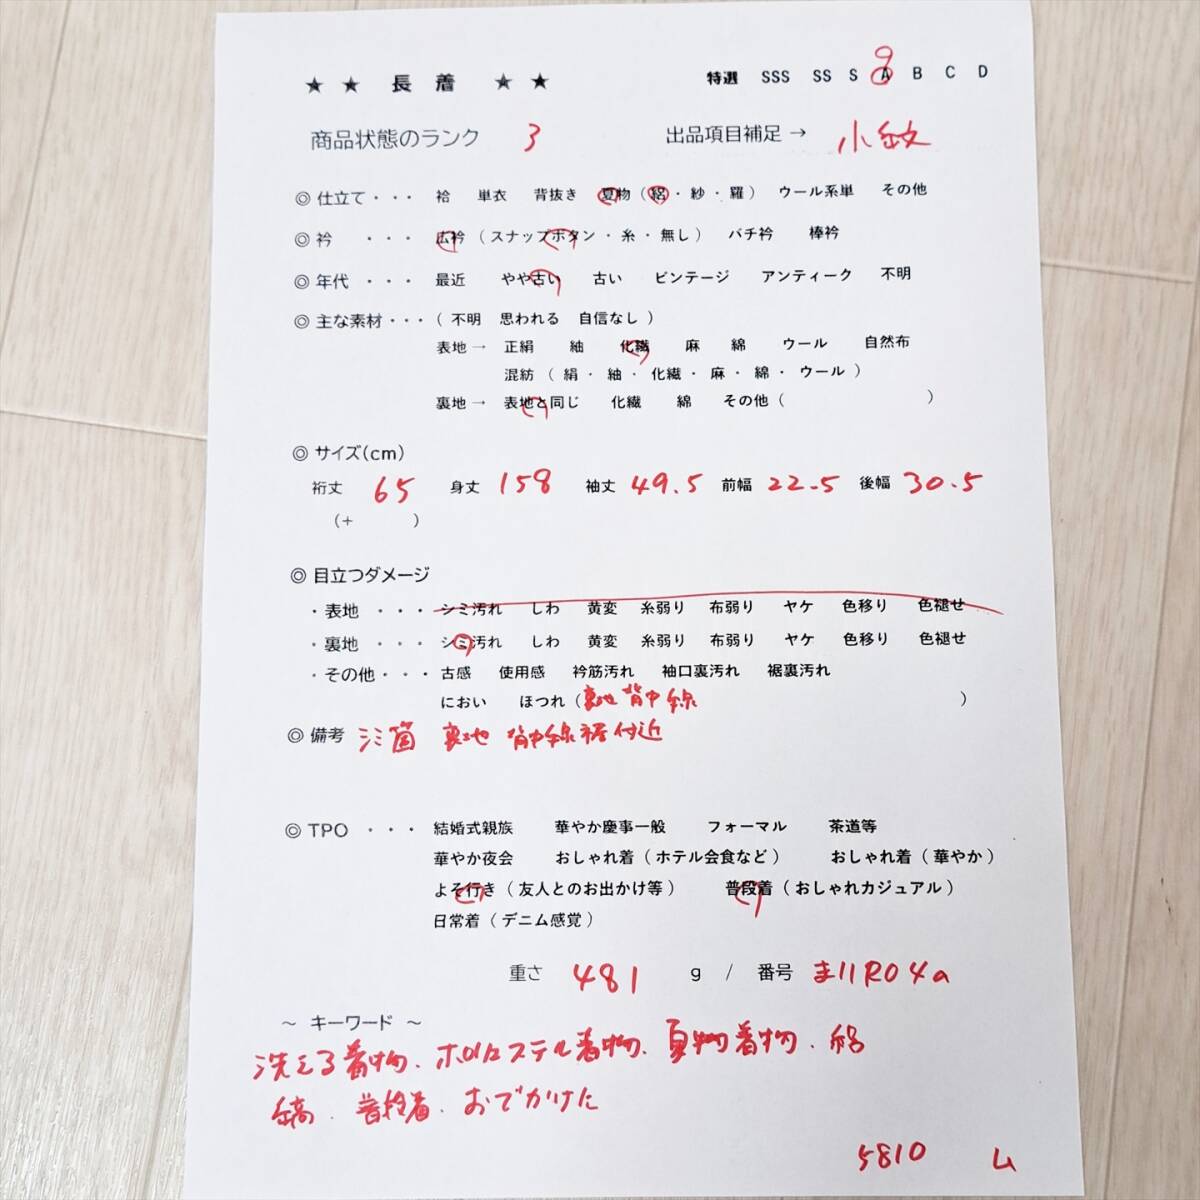 ★ ★ 長 着 ★ ★ 特選 SSS SS S A B C D
商品状態のランク 3 出品項目補足 → 小紋
◎ 仕立て・・・ 袷 単衣 背抜き 夏物 ( 絽・紗・羅 ) ウール系単 その他
◎ 衿 ・・・ 広衿 ( スナップボタン・糸・無し ) バチ衿 棒衿
◎ 年代 ・・・ 最近 やや古い 古い ビンテージ アンティーク 不明
◎ 主な素材・・・ ( 不明 思われる 自信なし )
表地→ 正絹 紬 化繊 麻 綿 ウール 自然布
混紡 ( 絹・紬・化繊・麻・綿・ウール )
裏地→ 表地と同じ 化繊 綿 その他 ( )
◎ サイズ(cm)
裄丈 65 身丈 158 袖丈 49.5 前幅 22.5 後幅 30.5
(+ )
◎ 目立つダメージ
・表地 ・・・ シミ汚れ しわ 黄変 糸弱り 布弱り ヤケ 色移り 色褪せ
・裏地 ・・・ シミ汚れ しわ 黄変 糸弱り 布弱り ヤケ 色移り 色褪せ
・その他・・・ 古感 使用感 衿筋汚れ 袖口裏汚れ 裾裏汚れ
におい ほつれ ( 裏地 背中線 )
◎ 備考 シミ箇 裏地 背中線裾付近
◎ TPO ・・・ 結婚式親族 華やか慶事一般 フォーマル 茶道等
華やか夜会 おしゃれ着 ( ホテル会食など ) おしゃれ着 ( 華やか )
よそ行き ( 友人とのお出かけ等 ) 普段着 ( おしゃれカジュアル )
日常着 ( デニム感覚 )
重さ 481 g / 番号 ま11R04a
～ キーワード ～
洗える着物、ポリエステル着物、夏物着物、絽
縞、普段着、おでかけた
5810 ム